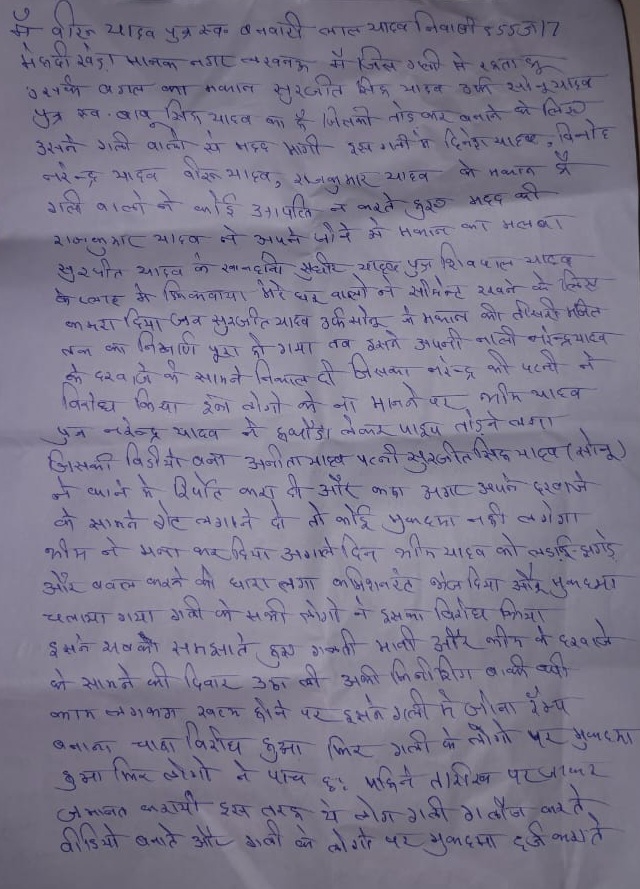 मैं वीरू यादव पुत्र स्व० बनवारी लाल यादव निवासी 555ज/7
मेंहदी खेड़ा मानक नगर लखनऊ मैं जिस गली मे रहता हूं
उसके बगल का मकान सुरजीत सिंह यादव उर्फ सोनू यादव
पुत्र स्व. बाबू सिंह यादव का है जिसको तोडकर बनाने के लिए
उसने गली वालो से मदद मांगी इस गली मे दिनेश यादव, विनोद
नरेन्द्र यादव वीरू यादव, राजकुमार यादव के मकान है
गली वालो ने कोई आपत्ति न करते हुए मदद की
राजकुमार यादव ने अपने जीने मे मकान का मलबा
सुरजीत यादव के खानदानी सुधीर यादव पुत्र शिवपाल यादव
के प्लाट मे फिकवाया मेरे घर वालो ने सीमेन्ट रखने के लिए
कमरा दिया जब सुरजीत यादव उर्फ सोनू ने मकान की तीसरी मंजिल
तक का निर्माण पूरा हो गया तब इसने अपनी नाली नरेन्द्र यादव
के दरवाजे के सामने निकाल दी जिसका नरेन्द्र की पत्नी ने
विरोध किया इन लोगो के ना मानने पर भीम यादव
पुत्र नरेन्द्र यादव ने हथौडा लेकर पाइप तोडने लगा
जिसकी विडीयो बना अनीता यादव पत्नी सुरजीत सिंह यादव (सोनू)
ने थाने मे रिपोर्ट करा दी और कहा अगर अपने दरवाजे
के सामने गेट लगाने दो तो कोई मुकदमा नही लगेगा
भीम ने मना कर दिया अगले दिन भीम यादव को लडाई-झगडे
और बवाल करने की धारा लगा कमिशनरेट भेज दिया और मुकदमा
चलाया गया गली के सभी लोगो ने इसका विरोध किया
इसने सबको समझाते हुए गलती मानी और भीम के दरवाजे
के सामने की दिवार उठा ली अभी फिनीशिंग बाकी थी
काम लगभग खत्म होने पर इसने गली मे जीना रैम्प
बनाना चाहा विरोध हुआ फिर गली के लोगो पर मुकदमा
हुआ फिर लोगो ने पांच छः महिने तारीख पर जाकर
जमानत करायी इस तरह ये लोग गाली गलौज करते
वीडियो बनाते और गली के लोगो पर मुकदमा दर्ज कराते